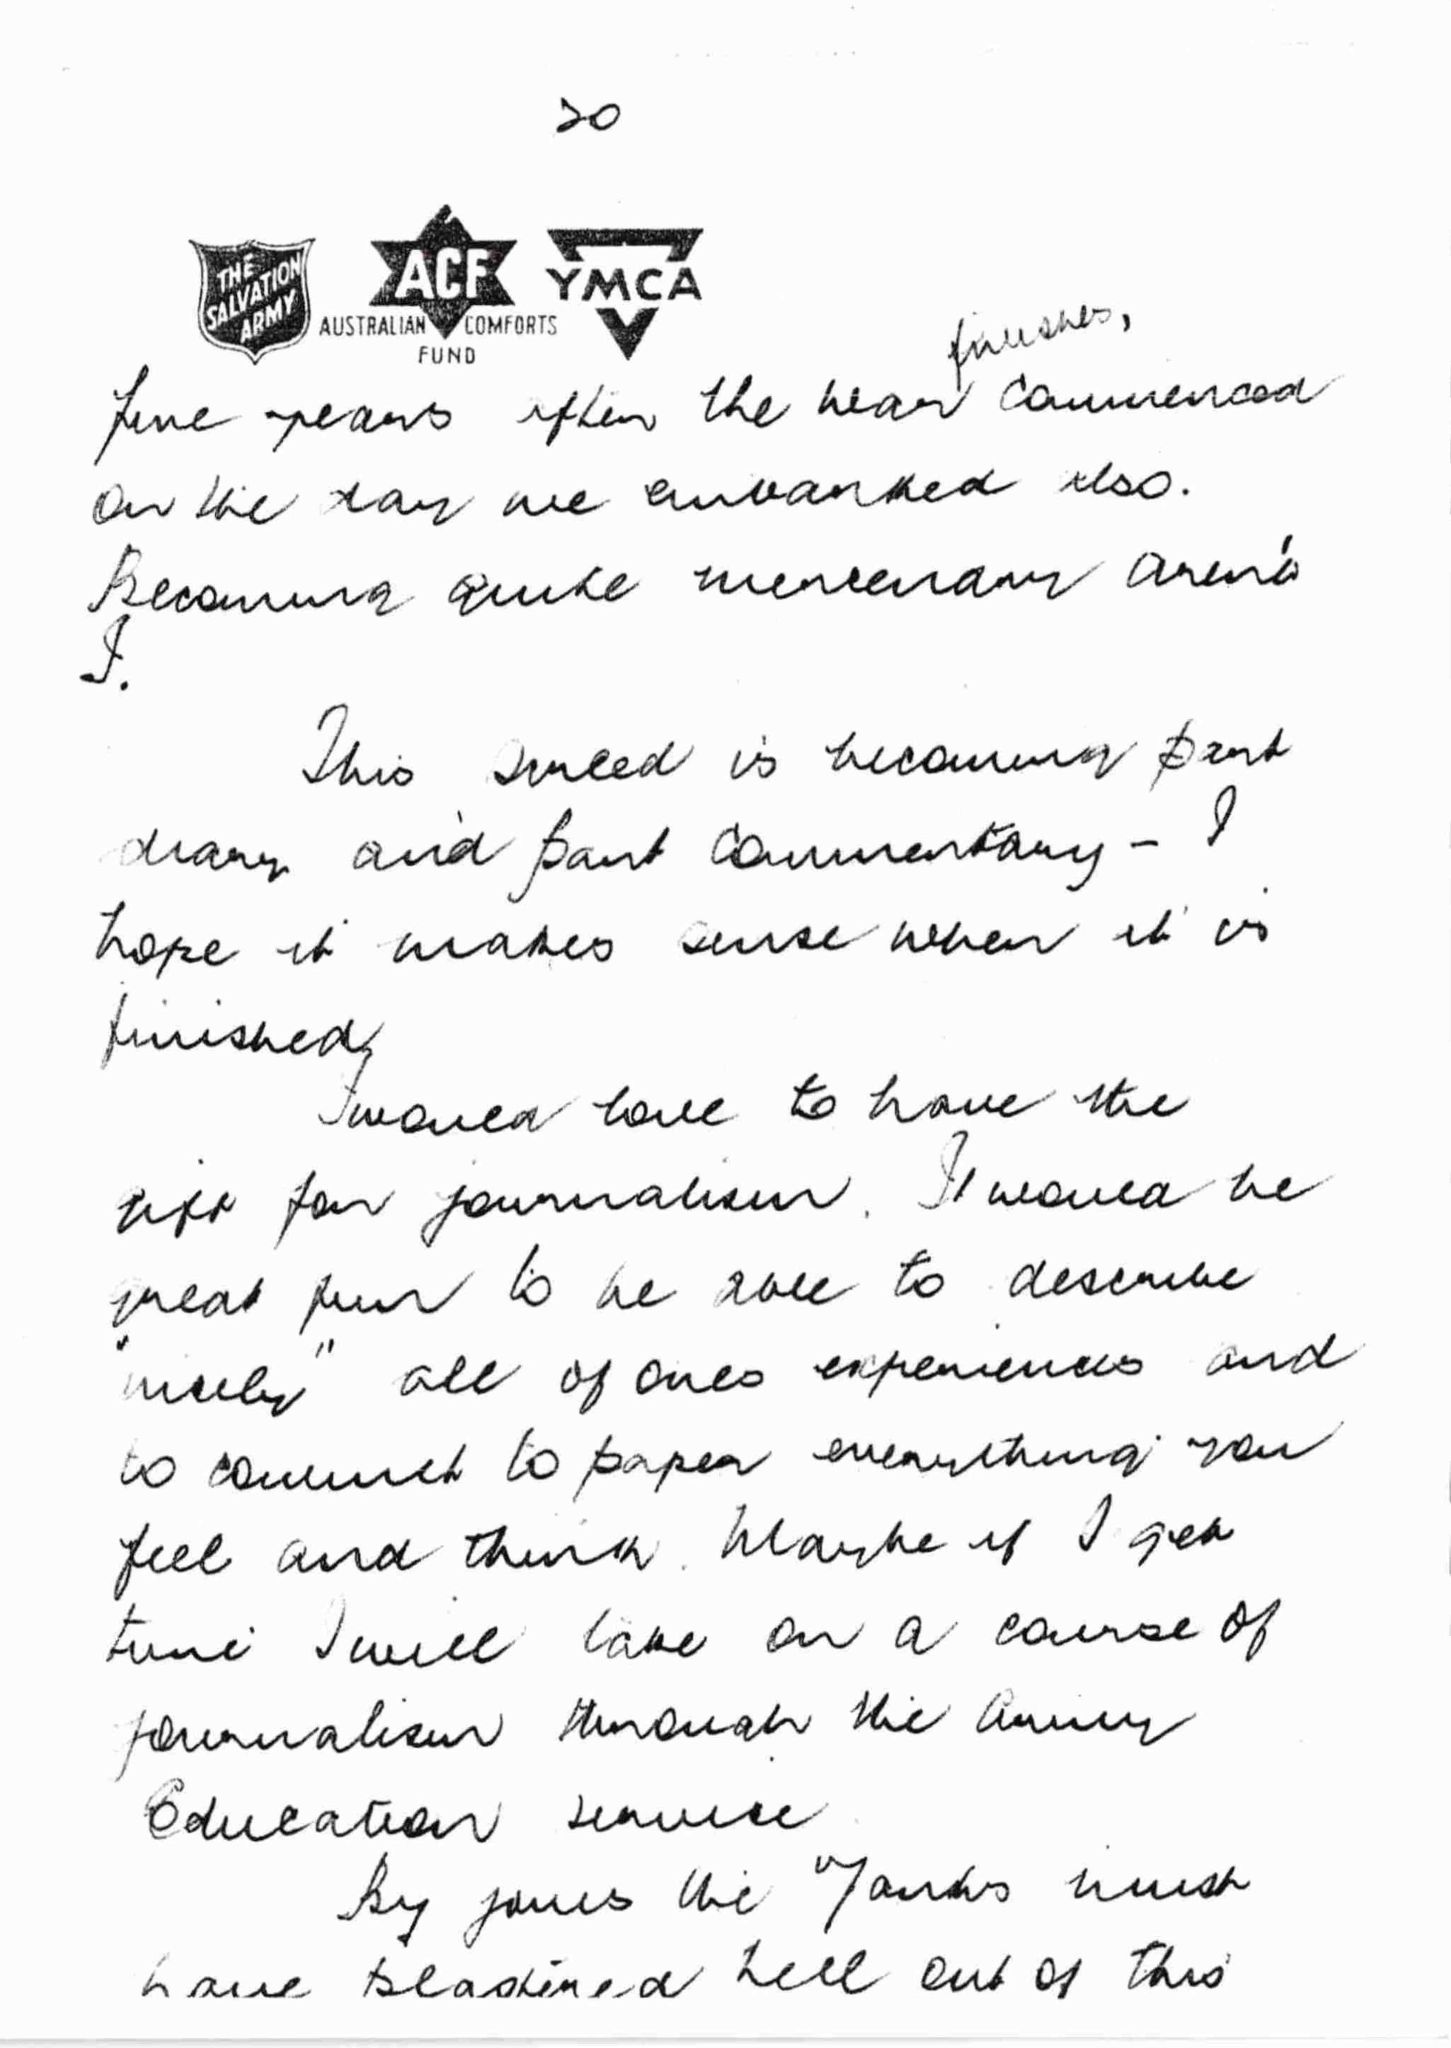 20
THE
SALVATION
ARMY
ACF
AUSTRALIAN COMFORTS
FUND
YMCA
finishes,
five years after the war commenced
on the day we embarked also.
Becoming quite mercenary aren't
I.
This screed is becoming part
diary and part commentary - I
hope it makes sense when it is
finished,
I would love to have the
gift for journalism. It would be
great fun to be able to describe
"nicely" all of ones experiences and
to commit to paper everything you
feel and think. Maybe if I get
time I will take on a course of
journalism through the Army
Education service.
By joves the Yanks must
have blastered hell out of this